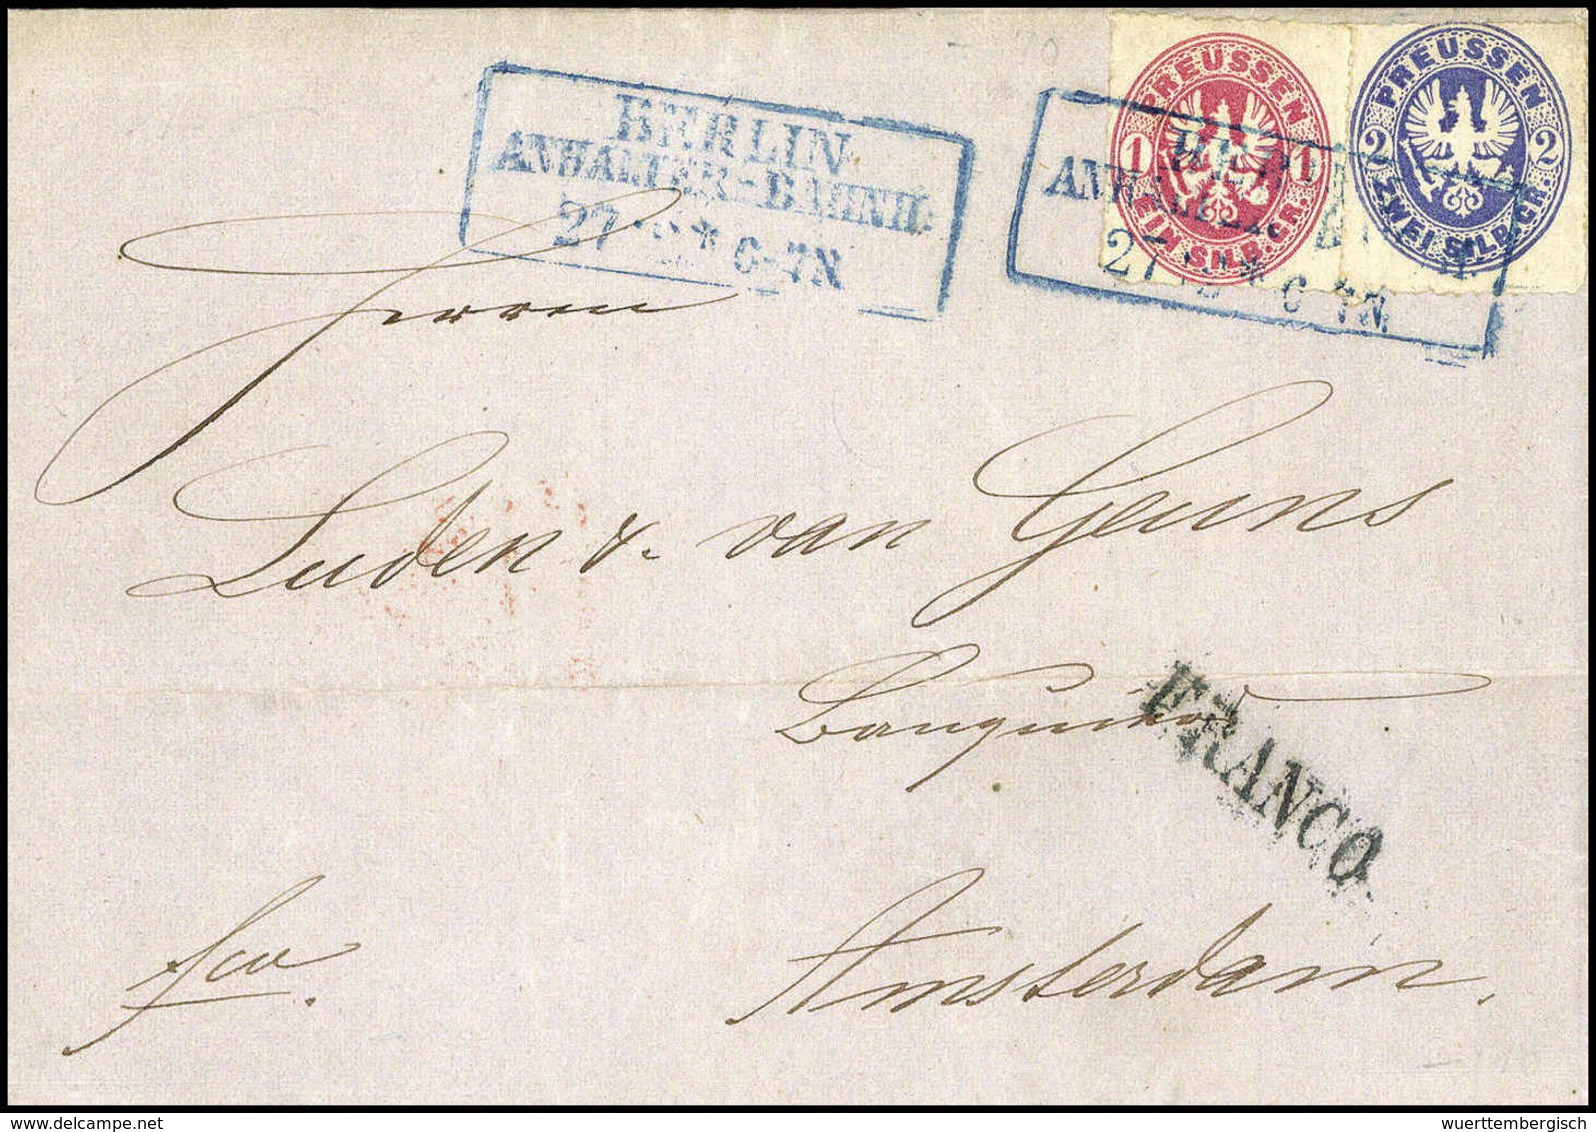 PREUSSEN
1 1
EIN SILB.GR.
PREUSSEN
2 2
ZWEI SILB.GR.
BERLIN
ANHALTER-BAHNH.
27 * 6-7N
BER
ANHALTER
27 * 6-7N
Herrn
Luden & van Geuns
Banquiers
FRANCO
fco.
Amsterdam.
www.delcampe.net
wuerttembergisch